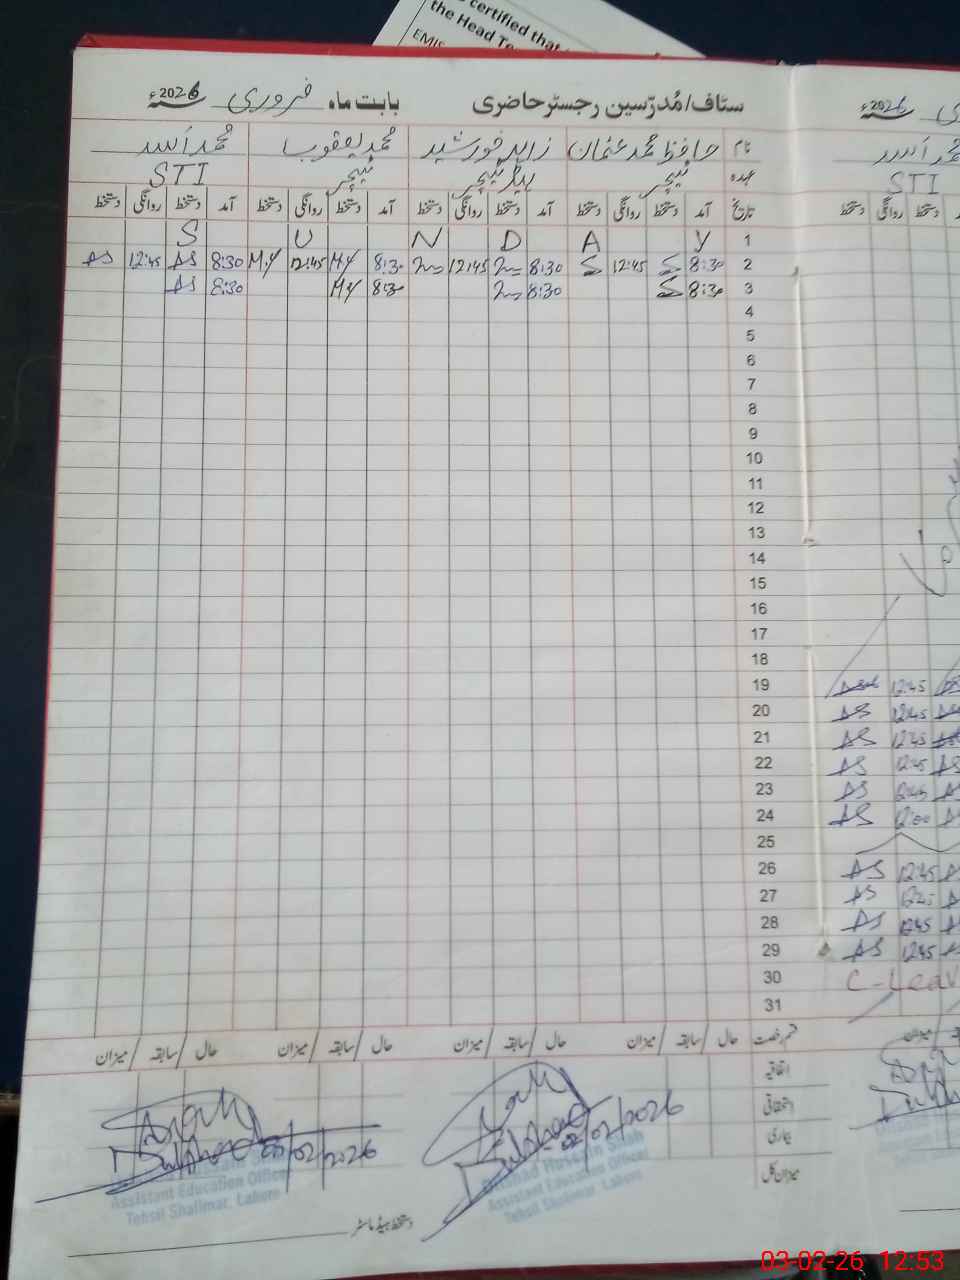 certified that
the Head Te
EMIS
سٹاف/مُدرّسین رجسٹر حاضری بابت ماہ فروری 2026ء
2026ء
نام حافظ محمد عثمان زاہد خورشید محمد یعقوب محمد اسد
محمد اسد
عہدہ ٹیچر ہیڈ ٹیچر ٹیچر STI
STI
تاریخ آمد دستخط روانگی دستخط آمد دستخط روانگی دستخط آمد دستخط روانگی دستخط آمد دستخط روانگی دستخط
دستخط روانگی دستخط
S U N D A Y 1
AS 12:45 AS 8:30 M.Y 12:45 M.Y 8:30 12:45 8:30 12:45 8:30 2
AS 8:30 M.Y 8:30 8:30 8:30 3
4
5
6
7
8
9
10
11
12
13
14
15
16
17
18
19 12:45
20 AS 12:45
21 AS 12:45
22 AS 12:45
23 AS 12:45
24 AS 12:00
25
26 AS 12:45
27 AS
28 AS 12:45
29 AS 12:45
30 C-Leav
31
قسم رخصت حال / سابقہ / میزان حال / سابقہ / میزان حال / سابقہ / میزان حال / سابقہ / میزان
میزان
اتفاقیہ
استحقاقی
بیماری
میزان کل
02/02/2026
02/02/2026
Dilshad Hussain Shah
Assistant Education Officer
Tehsil Shalimar, Lahore
Assistant Education Officer
Tehsil Shalimar, Lahore
دستخط ہیڈ ماسٹر
03-02-26 12:53